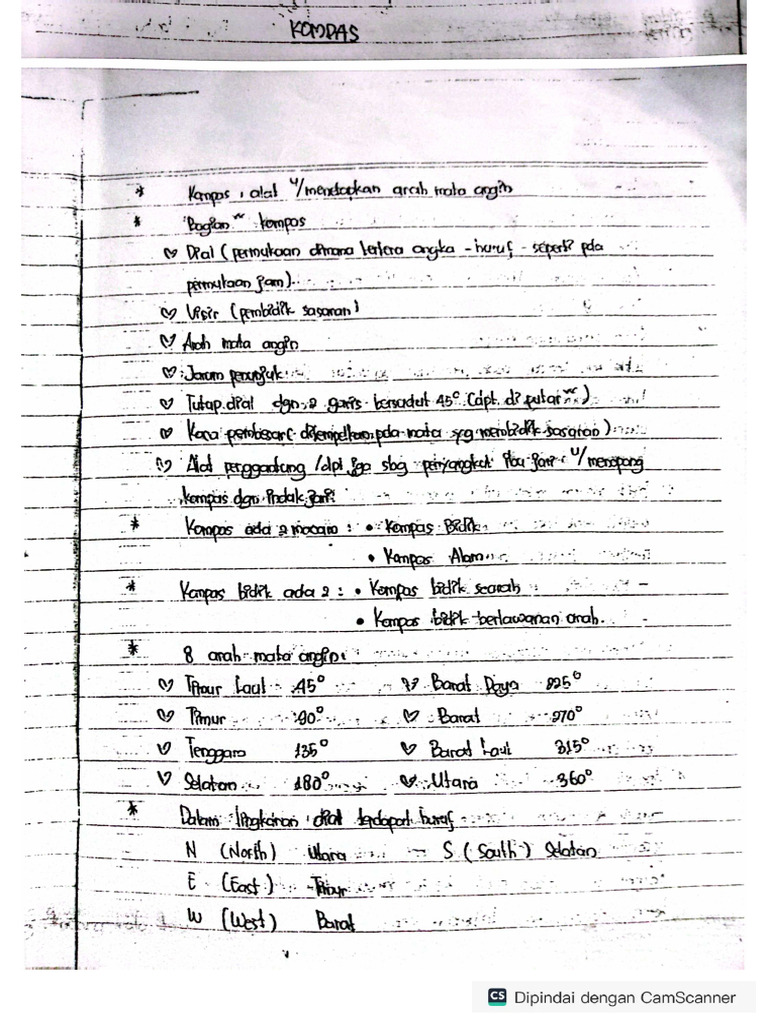 KOMPAS
* Kompas : alat u/ mendapkan arah mata angin
* Bagian" kompas
♡ Dial (permukaan dimana tertera angka - huruf - seperti pda
permukaan jam).
♡ Visir (pembidik sasaran)
♡ Arah mata angin
♡ Jarum penunjuk
♡ Tutup dial dgn 2 garis bersudut 45° (dpt. di putar")
♡ Kaca pembesar (ditempelkan pda mata yg membidik sasaran)
♡ Alat penggantung / dpt jga sbg penyangkut ibu jari u/ menopang
kompas dgn indak jari
* Kompas ada 2 macam : • Kompas Bidik
• Kompas Alam
* Kompas bidik ada 2 : • Kompas bidik searah
• Kompas bidik berlawanan arah.
* 8 arah mata angin :
♡ Timur Laut 45° ♡ Barat Daya 225°
♡ Timur 90° ♡ Barat 270°
♡ Tenggara 135° ♡ Barat Laut 315°
♡ Selatan 180° ♡ Utara 360°
* Dalam lingkaran dial terdapat huruf
N (North) Utara S (South) Selatan
E (East) Timur
W (West) Barat
CS Dipindai dengan CamScanner